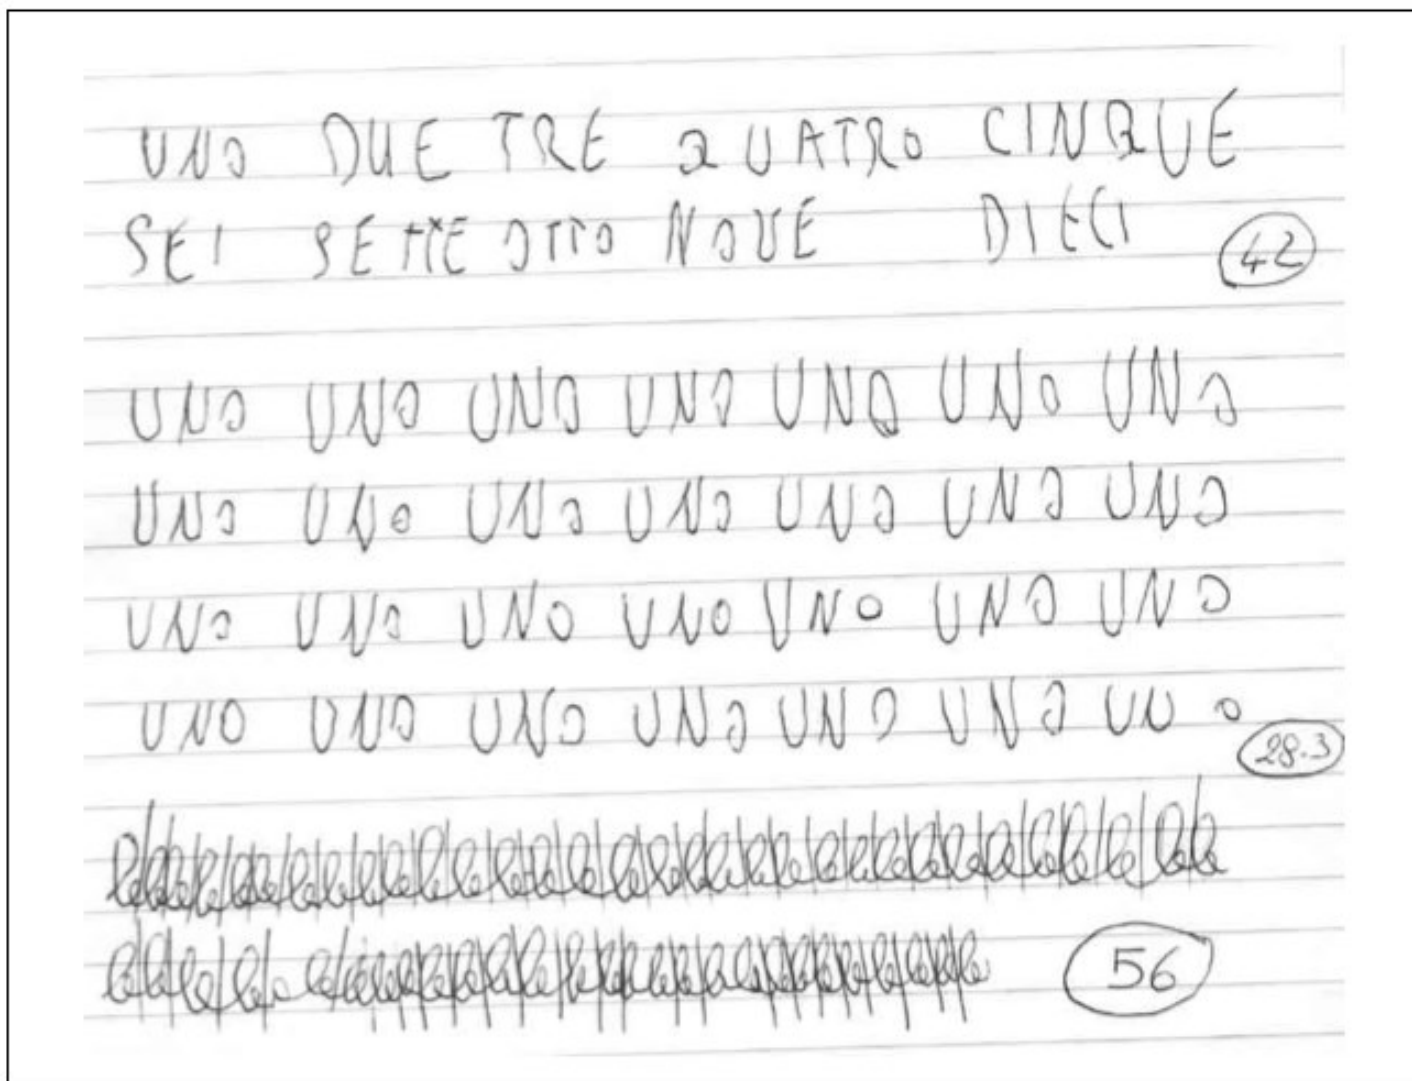 UNO DUE TRE QUATRO CINQUE
SEI SETTE OTTO NOVE DIECI 42
UNO UNO UNO UNO UNO UNO UNO
UNO UNO UNO UNO UNO UNO UNO
UNO UNO UNO UNO UNO UNO UNO
UNO UNO UNO UNO UNO UNO UNO
28.3
56